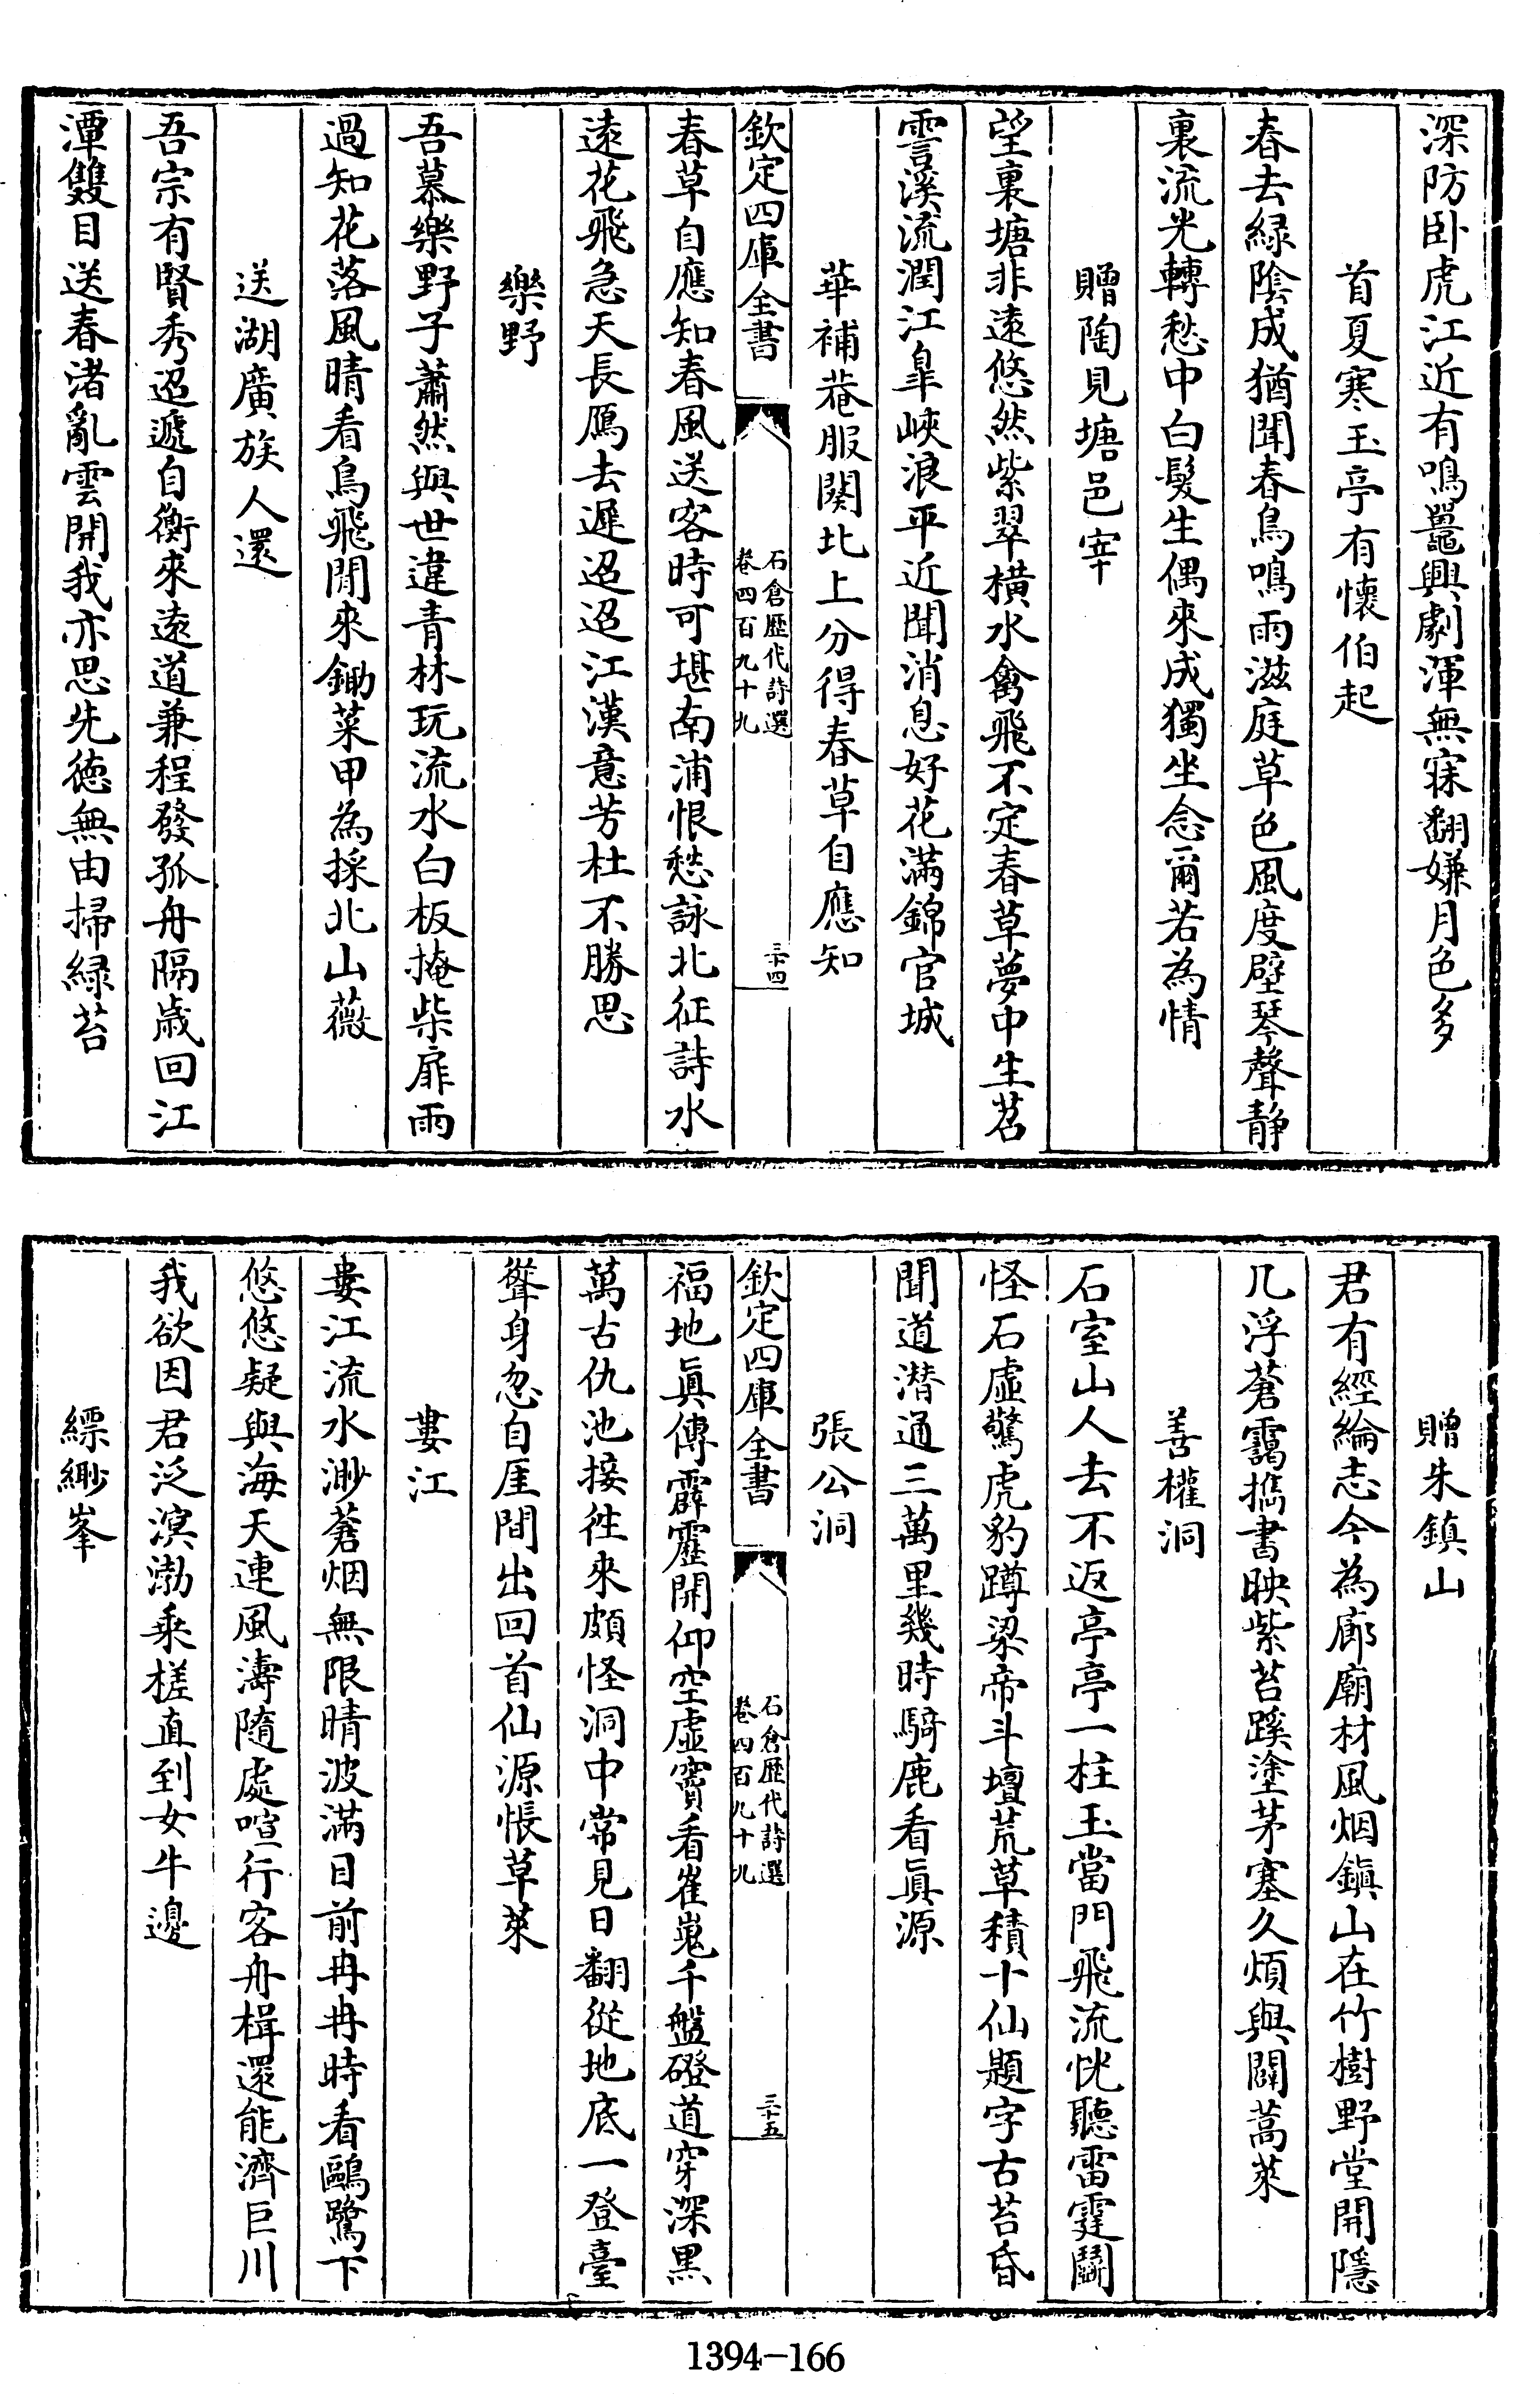 深防卧虎江近有鳴鼉興劇渾無寐翻嫌月色多
首夏寒玉亭有懷伯起
春去緑陰成猶聞春鳥鳴雨滋庭草色風度壁琴聲静
裏流光轉愁中白髮生偶來成獨坐念爾若為情
贈陶見塘邑宰
望裏塘非遠悠然紫翠橫水禽飛不定春草夢中生苕
霅溪流潤江臯峽浪平近聞消息好花滿錦官城
華補菴服闋北上分得春草自應知
欽定四庫全書
石倉歷代詩選
卷四百九十九
三十四
春草自應知春風送客時可堪南浦恨愁詠北征詩水
遠花飛急天長鴈去遲迢迢江漢意芳杜不勝思
樂野
吾慕樂野子蕭然與世違青林玩流水白板掩柴扉雨
過知花落風晴看鳥飛閒來鋤菜甲為採北山薇
送湖廣族人還
吾宗有賢秀迢遞自衡來遠道兼程發孤舟隔歳回江
潭雙目送春渚亂雲開我亦思先徳無由掃緑苔
贈朱鎮山
君有經綸志今為廊廟材風烟鎮山在竹樹野堂開隱
几浮蒼靄擕書映紫苔蹊塗茅塞久煩與闢蒿萊
善權洞
石室山人去不返亭亭一柱玉當門飛流恍聽雷霆鬭
怪石虛驚虎豹蹲梁帝斗壇荒草積十仙題字古苔昏
聞道潛通三萬里幾時騎鹿看眞源
張公洞
欽定四庫全書
石倉歷代詩選
卷四百九十九
三十五
福地眞傳霹靂開仰空虛竇看崔嵬千盤磴道穿深黒
萬古仇池接徃來頗怪洞中常見日翻從地底一登臺
聳身忽自厓間出回首仙源悵草萊
婁江
婁江流水渺蒼烟無限晴波滿目前冉冉時看鷗鷺下
悠悠疑與海天連風濤隨處喧行客舟楫還能濟巨川
我欲因君泛溟渤乗槎直到女牛邊
縹緲峯
1394-166